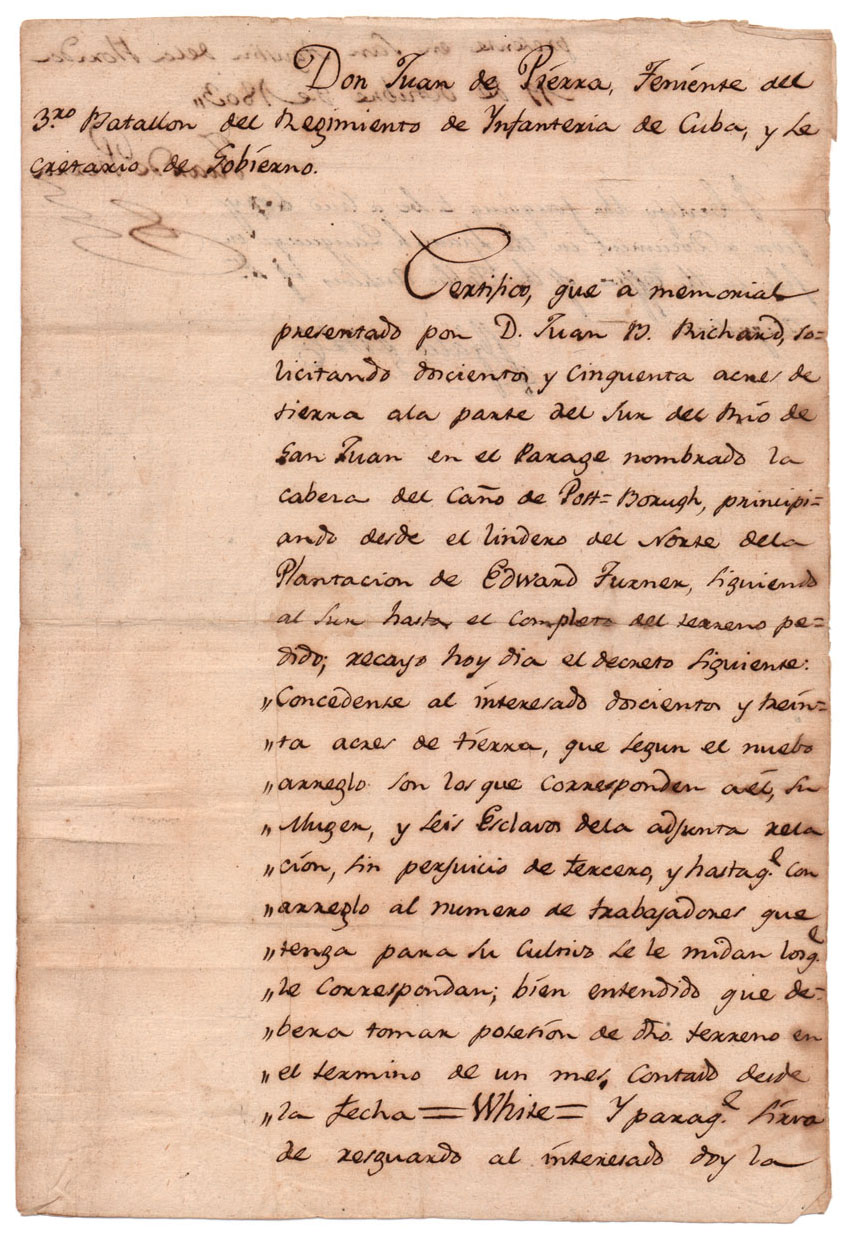 Don Juan de Pierra, Teniente del
3.ro Batallon del Regimiento de Ynfanteria de Cuba, y Se
cretario de Gobierno.
Certifico, que a memorial
presentado por D. Juan B. Richard, so-
licitando doscientos y cinquenta acres de
tierra ala parte del Sur del Rio de
San Juan en el Parage nombrado la
cabera del Caño de Pott=Borugh, principi=
ando desde el lindero del Norte dela
Plantacion de Edward Turner, siguiendo
al Sur hasta el completo del terreno pe=
dido; recayo hoy dia el decreto siguiente:
„Concedense al interesado doscientos y trein=
„ta acres de tierra, que segun el nuebo
„arreglo son los que corresponden a él, su
„Muger, y seis Esclavos dela adjunta rela
„ción, sin perjuicio de tercero, y hasta q.e con
„arreglo al numero de trabajadores que
„tenga para su cultivo se le midan los q.e
„le correspondan; bien entendido que de=
„bera tomar posesión de dho. terreno en
„el termino de un mes, contado desde
„la fecha = White = Y para q.e sirva
de resguardo al interesado doy la